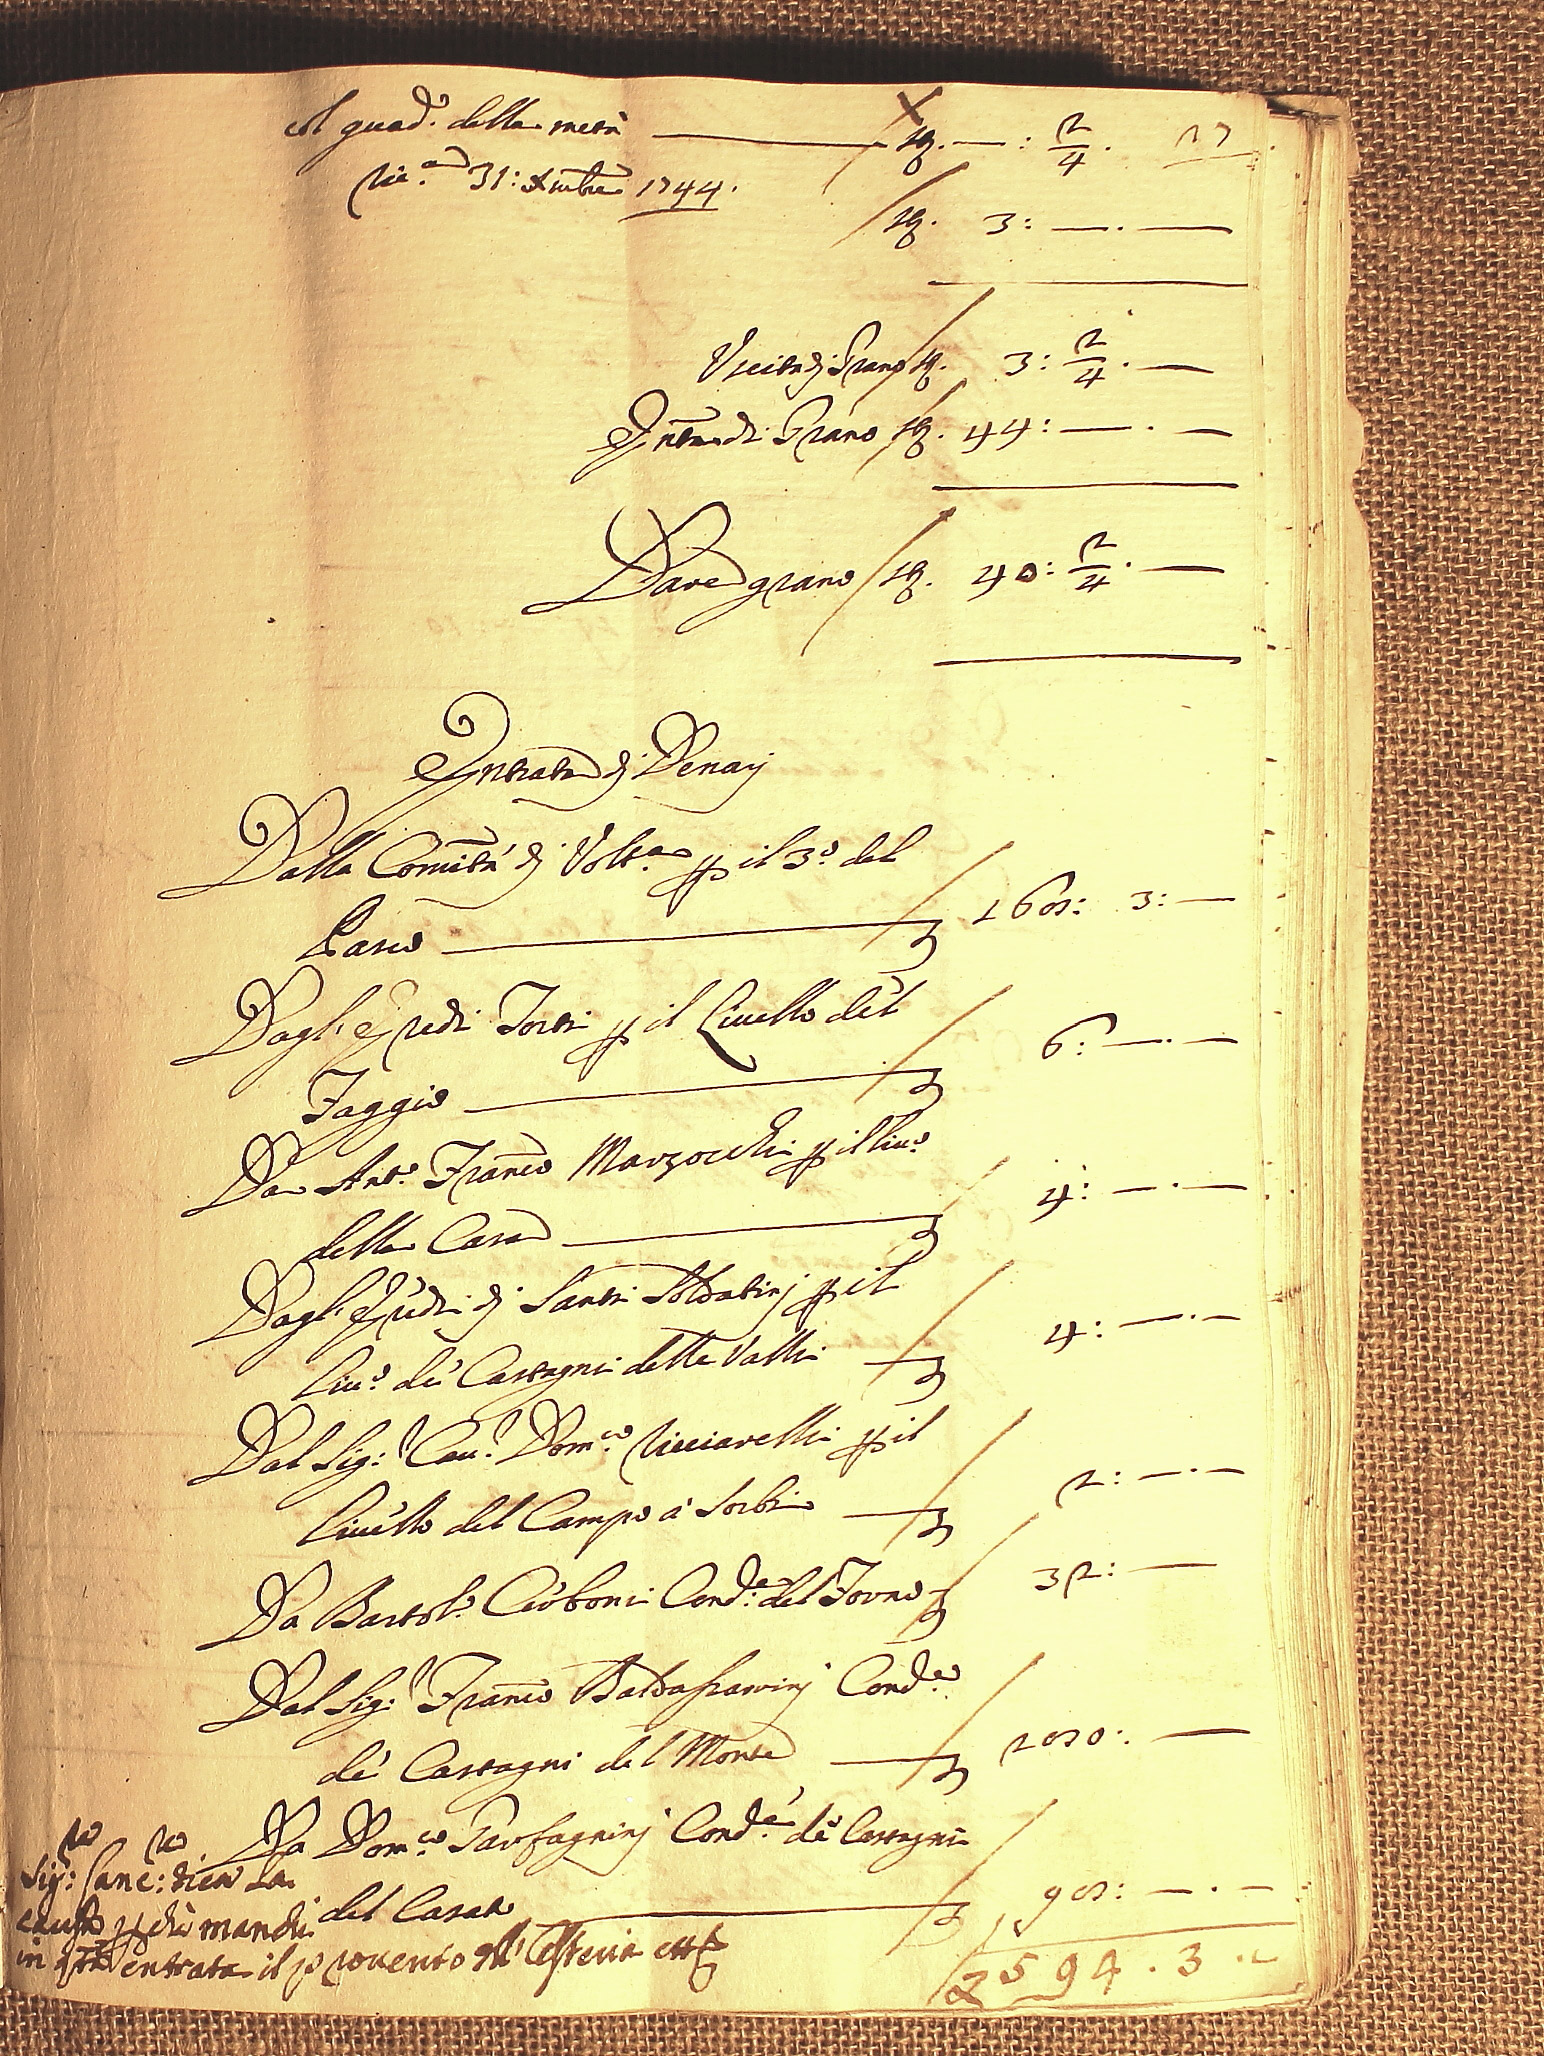 al quad.º della metà — sq. — : 2/4 . 17
31: Xmbre 1744.
sq. 3: — . —
Uscita di Grano sq. 3: 2/4 . —
Entrã di Grano sq. 44: — . —
Dare grano sq. 40: 2/4 . —
Entrata di Denarj
Dalla Comũtà di Volt.a p il 3.º del
Pasco — 160: 3: —
Dagl'Eredi Torri p il Livello del
Faggio — 6: — . —
Da Ant.º Franco Marzocchi p il Liv.º
della Casa — 4: — . —
Dagl'Eredi di Santi Soldatinj p il
Liv.º de Castagni delle Valli — 4: — . —
Dal Sig.r Cav.r Dom.co Ricciarelli p il
Livello del Campo a Sorbi — 2: — . —
Da Bartol.º Cerboni Cond.e del Forno 32: —
Dal Sig.r Franco Baldassarrinj Cond.e
de Castagni del Monte —
Da Dom.co Garfagninj Cond.e de Castagni
del Casale — — . —
Sig: Canc: dica la
causa p che mandi
in qta entrata il provento dell'Osteria
2594 . 3 . —